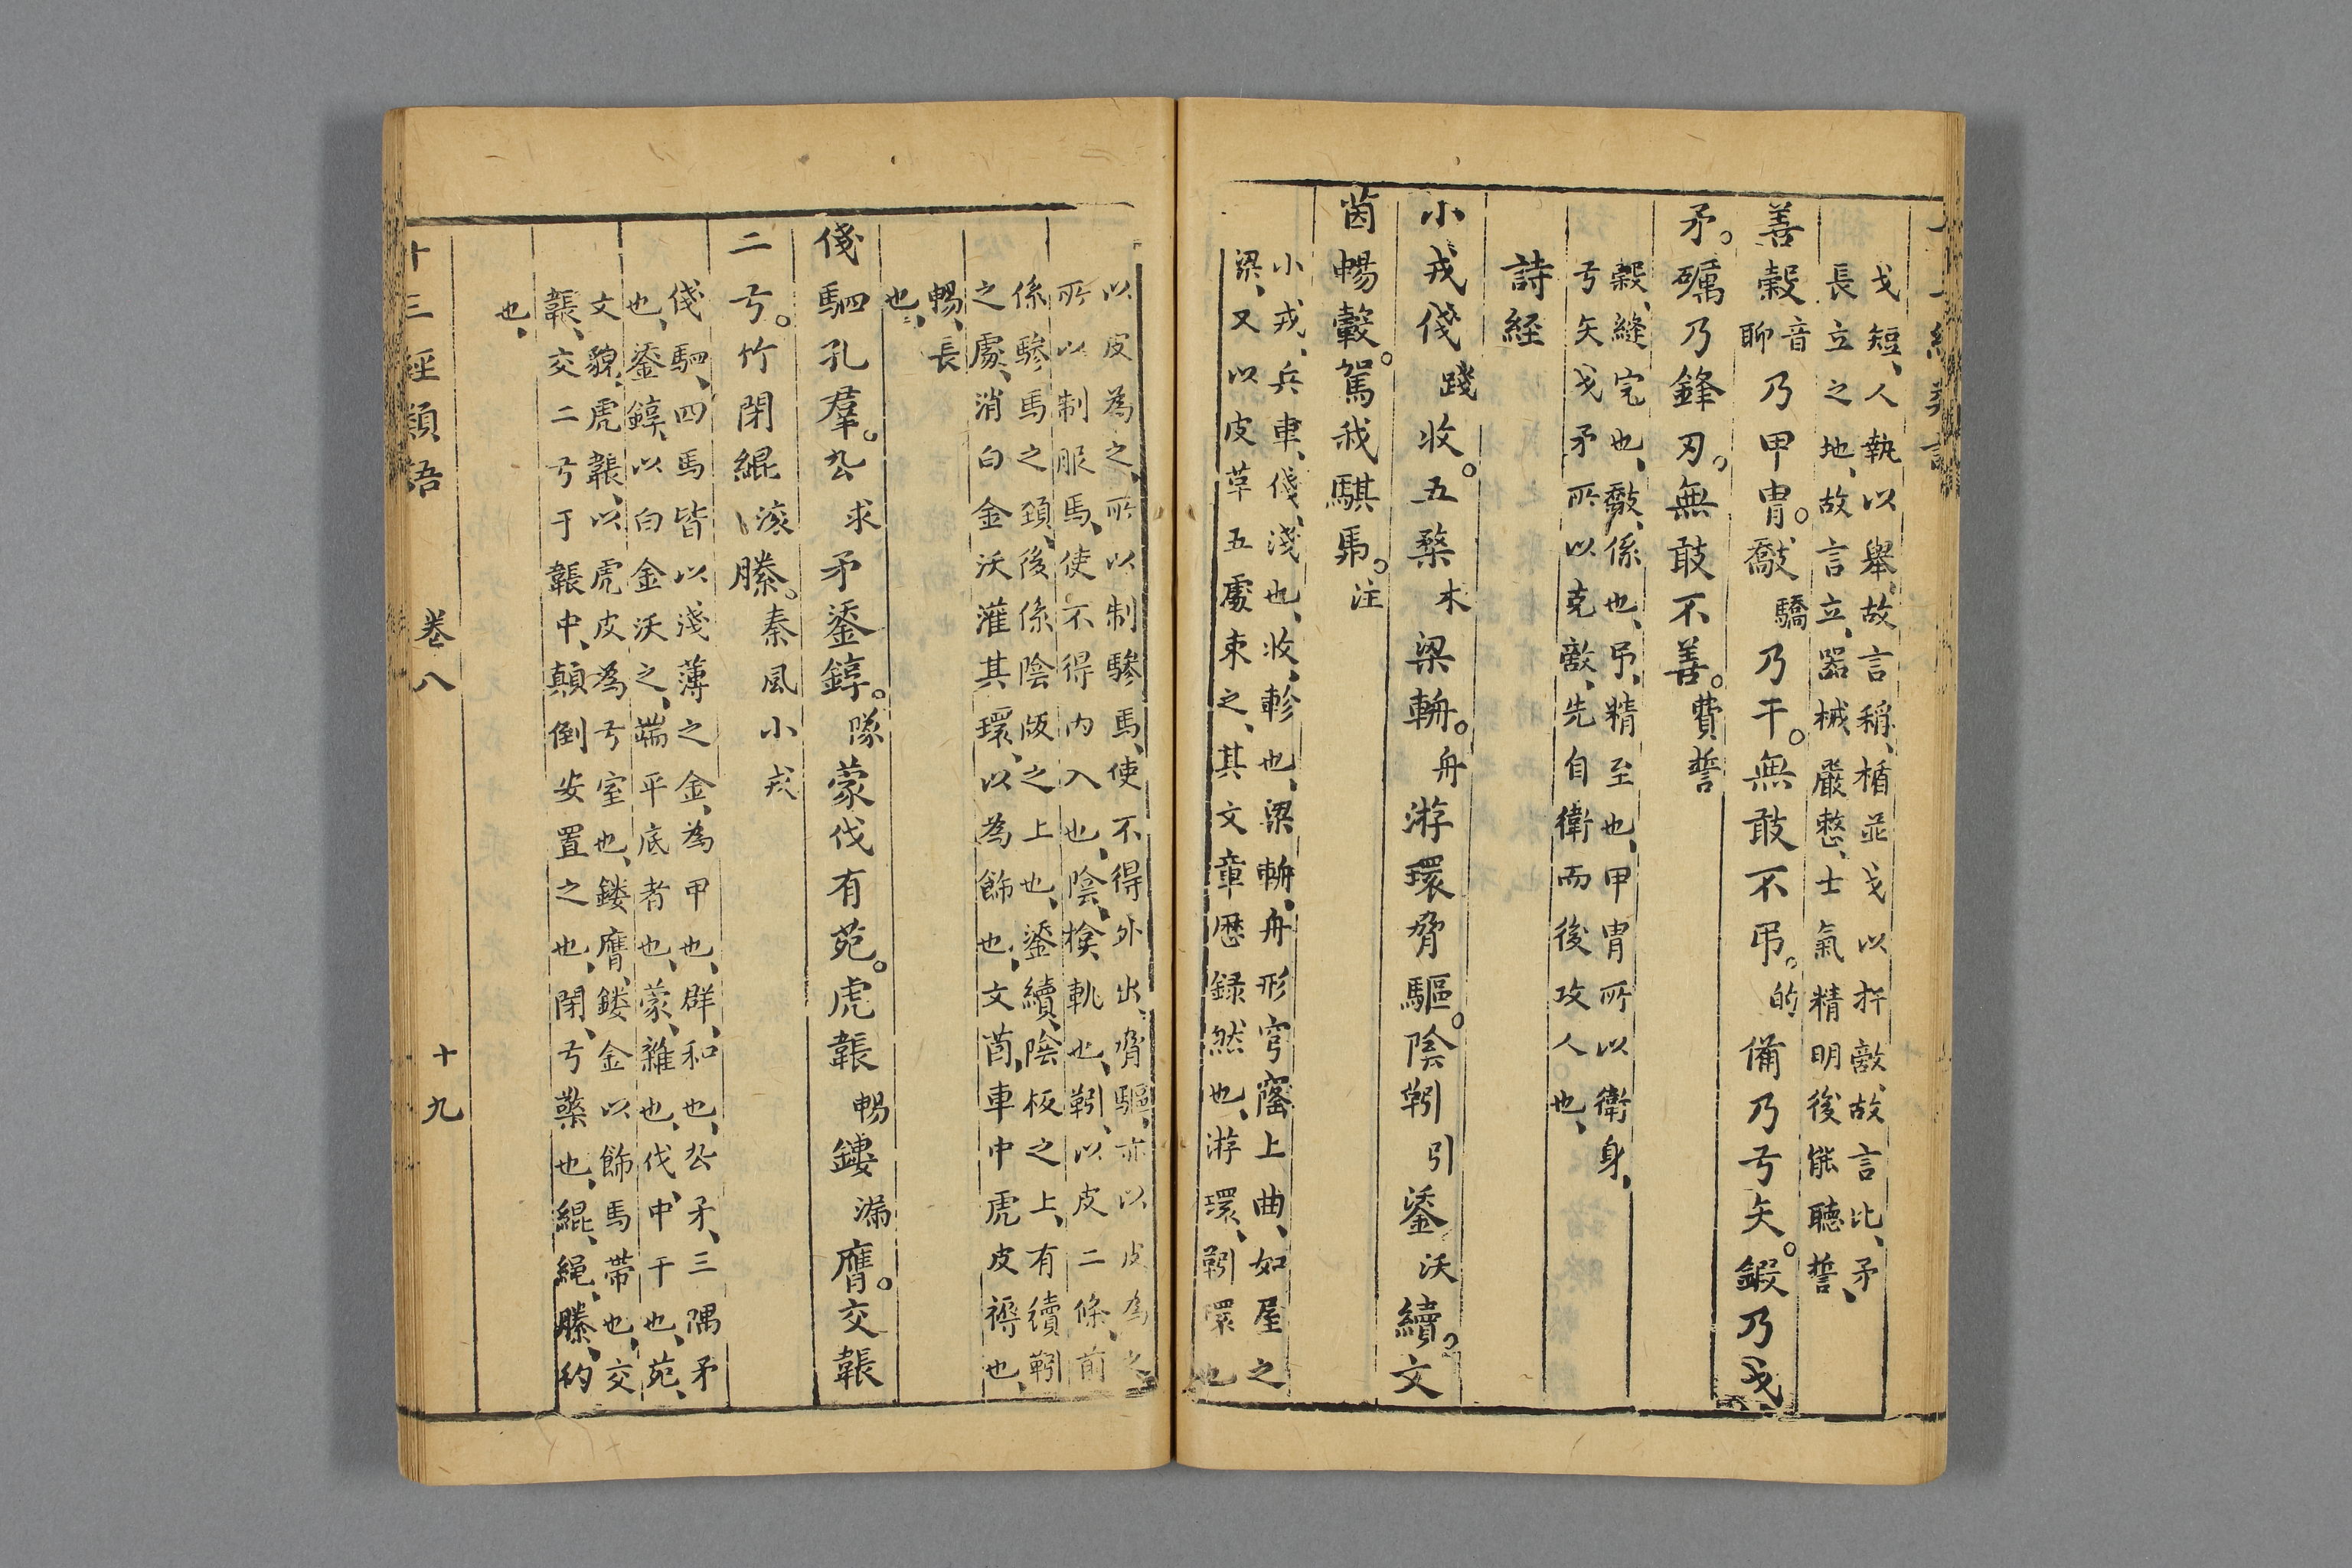 戈短、人執以舉、故言稱、楯並戈以扞敵、故言比、矛
長立之地、故言立、器械嚴整、士氣精明後能聽誓、
善穀音聊乃甲冑。敽驕乃干。無敢不弔。的備乃弓矢。鍜乃戈
矛。礪乃鋒刃。無敢不善。費誓
穀、縫完也、敽、係也、弔、精至也、甲冑所以衛身、
弓矢戈矛所以克敵、先自衛而後攻人也、
詩経
小戎俴踐收。五楘木梁輈。舟游環脅驅。陰靷引鋈沃續。文
茵暢轂。駕我騏馬。注
小戎、兵車、俴、淺也、收、軫也、梁輈、舟形穹窿上曲、如屋之
梁、又以皮革五處束之、其文章歷録然也、游環、靷環也
以皮為之、所以制驂馬、使不得外出、脅驅、亦以皮為之
所以制服馬、使不得内入也、陰、揜軓也、靷、以皮二條、前
係驂馬之頸、後係陰版之上也、鋈續、陰板之上、有續靷
之處、消白金沃灌其環、以為飾也、文茵、車中虎皮褥也、
暢、長
也、
俴駟孔羣。厹求矛鋈錞。隊蒙伐有苑。虎韔暢鏤漏膺。交韔
二弓。竹閉緄滚縢。秦風小戎
俴駟、四馬皆以淺薄之金、為甲也、群、和也、厹矛、三隅矛
也、鋈錞、以白金沃之、端平底者也、蒙、雜也、伐、中干也、苑、
文貌、虎韔、以虎皮為弓室也、鏤膺、鏤金以飾馬帶也、交
韔、交二弓于韔中、顛倒安置之也、閉、弓檠也、緄、繩、縢、約
也、
十三經類語 卷八 十九